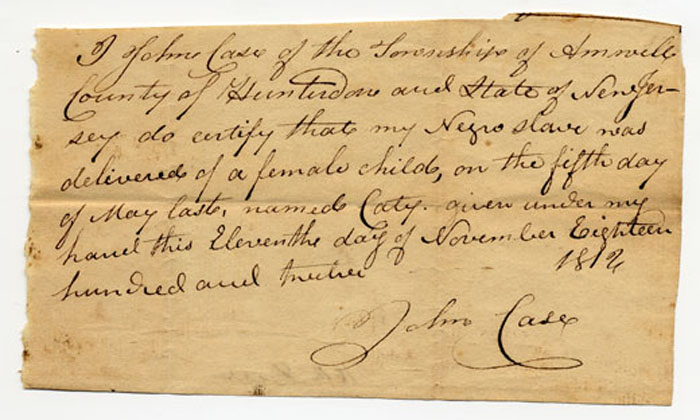 I John Case of the Township of Amwell
County of Hunterdon and State of New Jer-
sey do certify that my Negro slave was
delivered of a female child, on the fifth day
of May last, named Caty. given under my
hand this Eleventh day of November Eighteen
hundred and twelve 1812
John Case